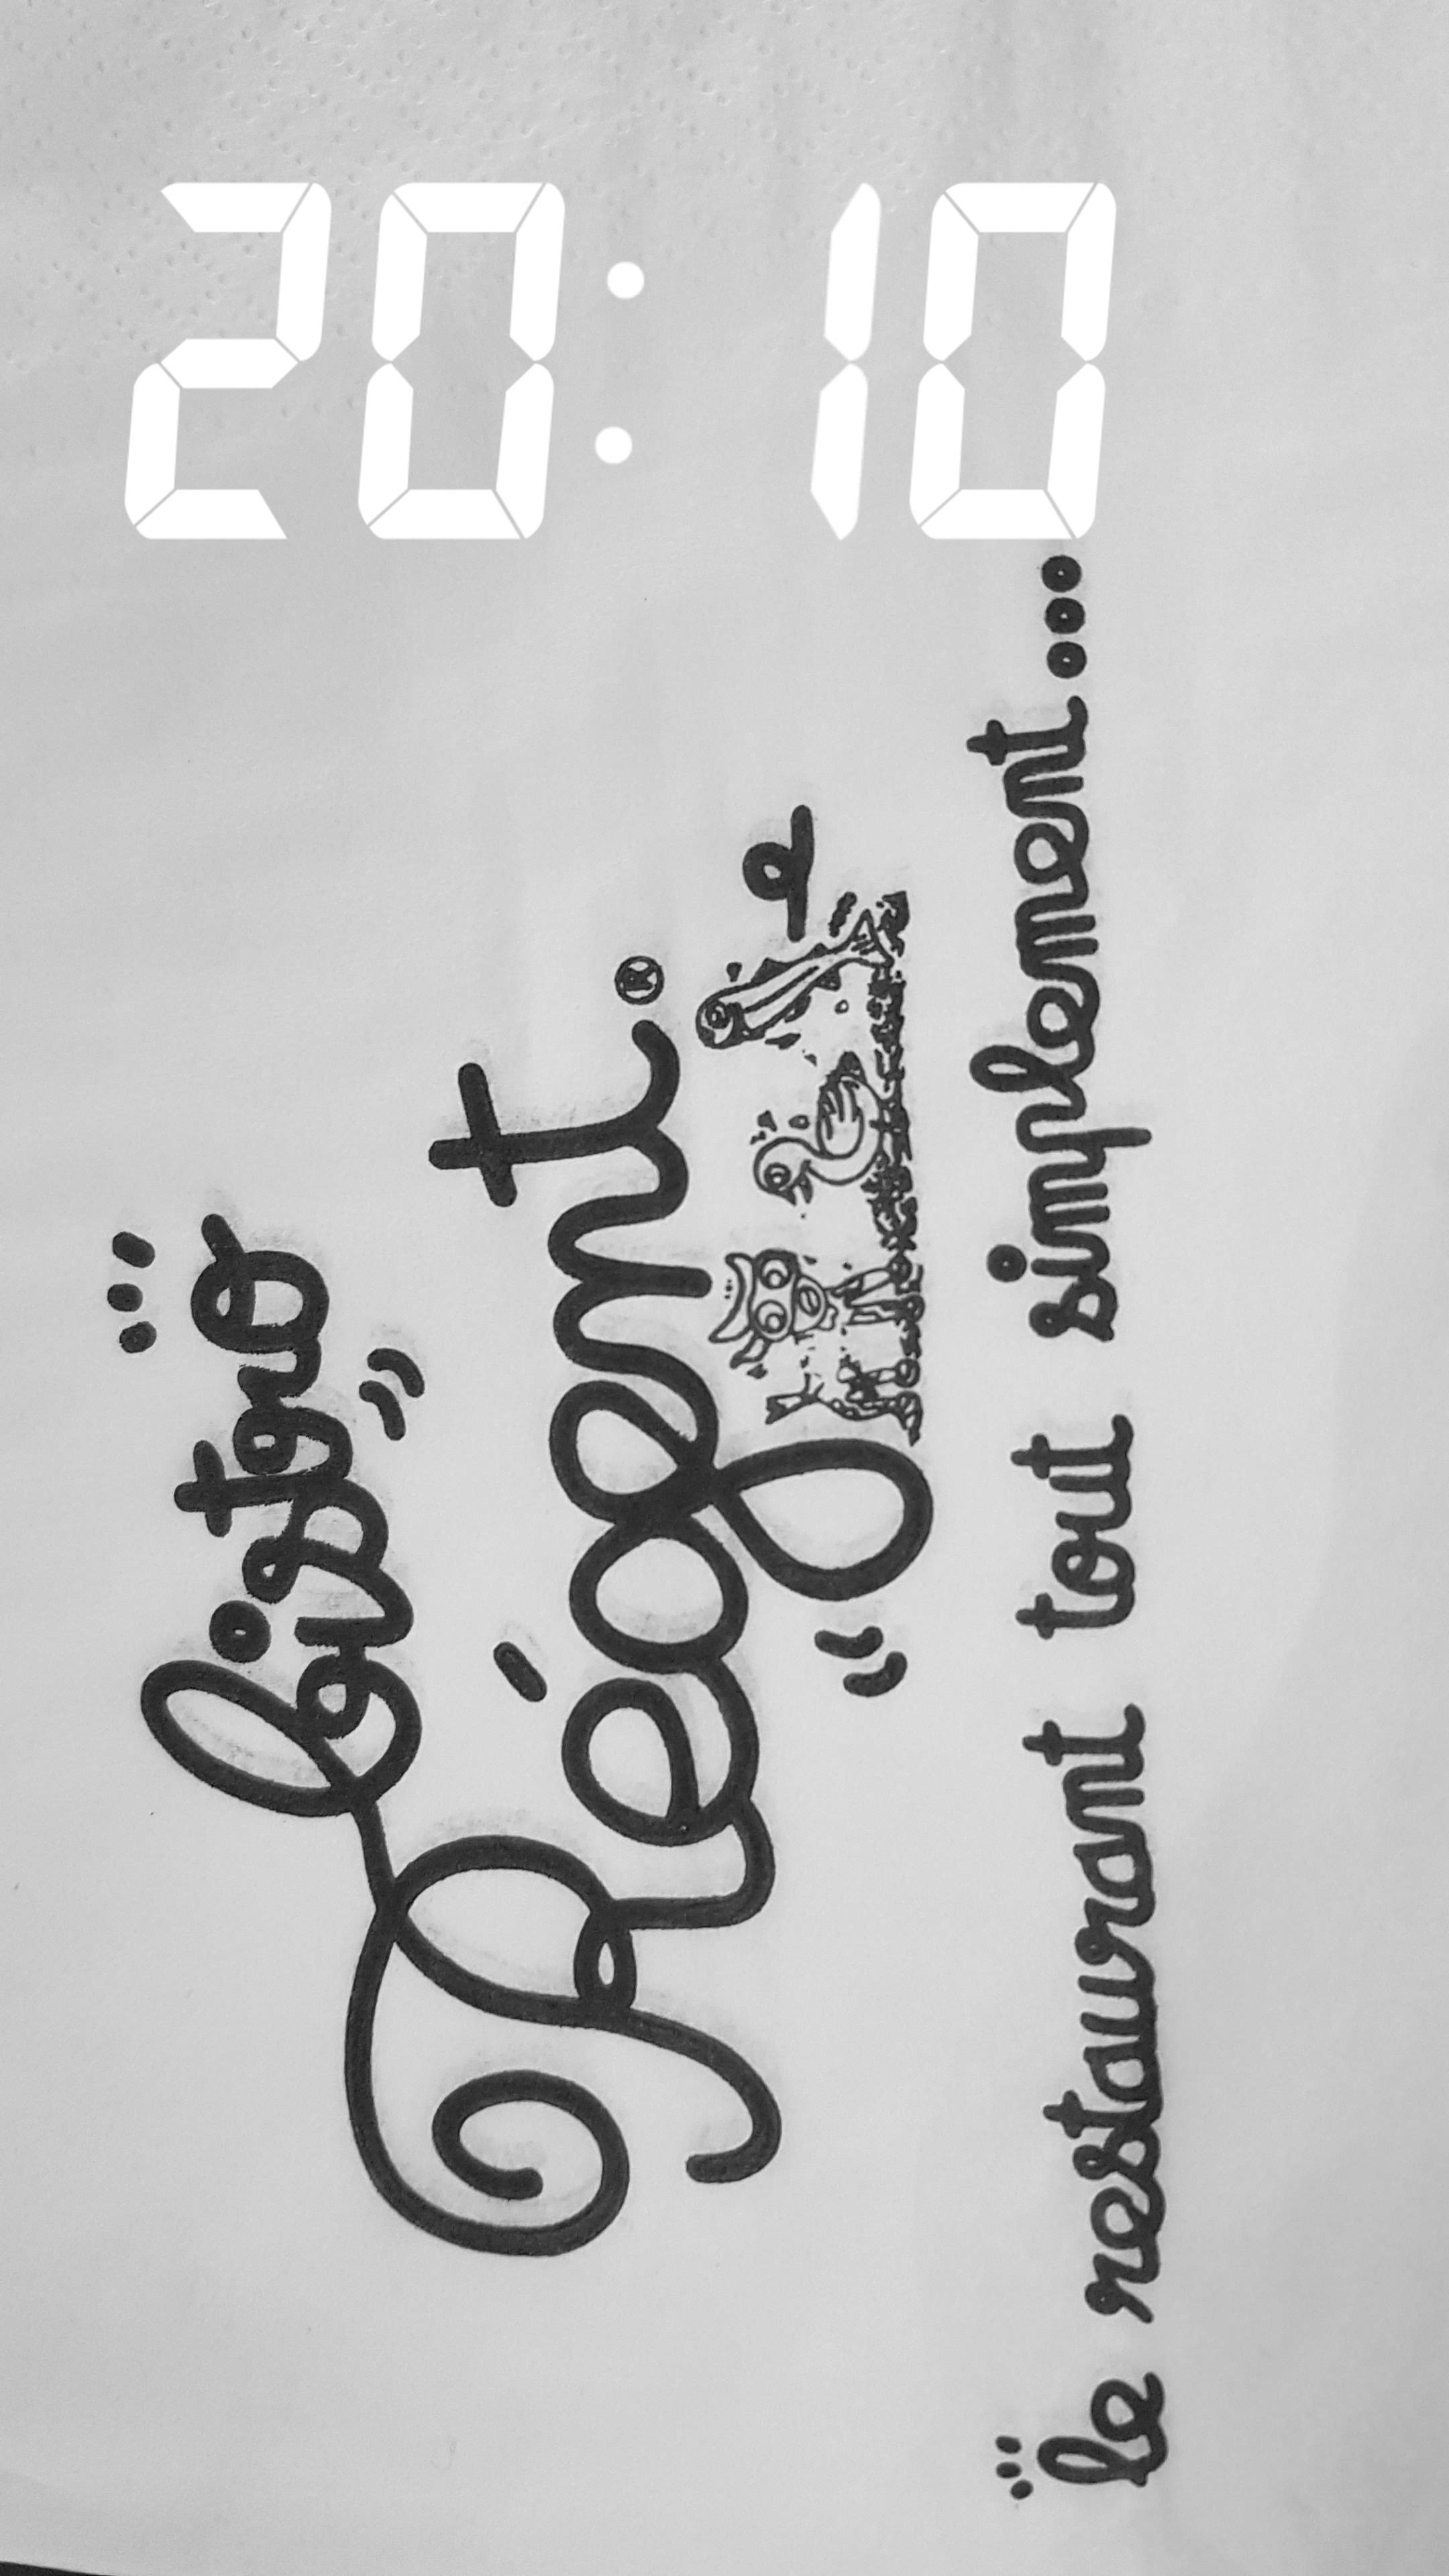 20:10
bistro
Régent.®
le restaurant tout simplement...